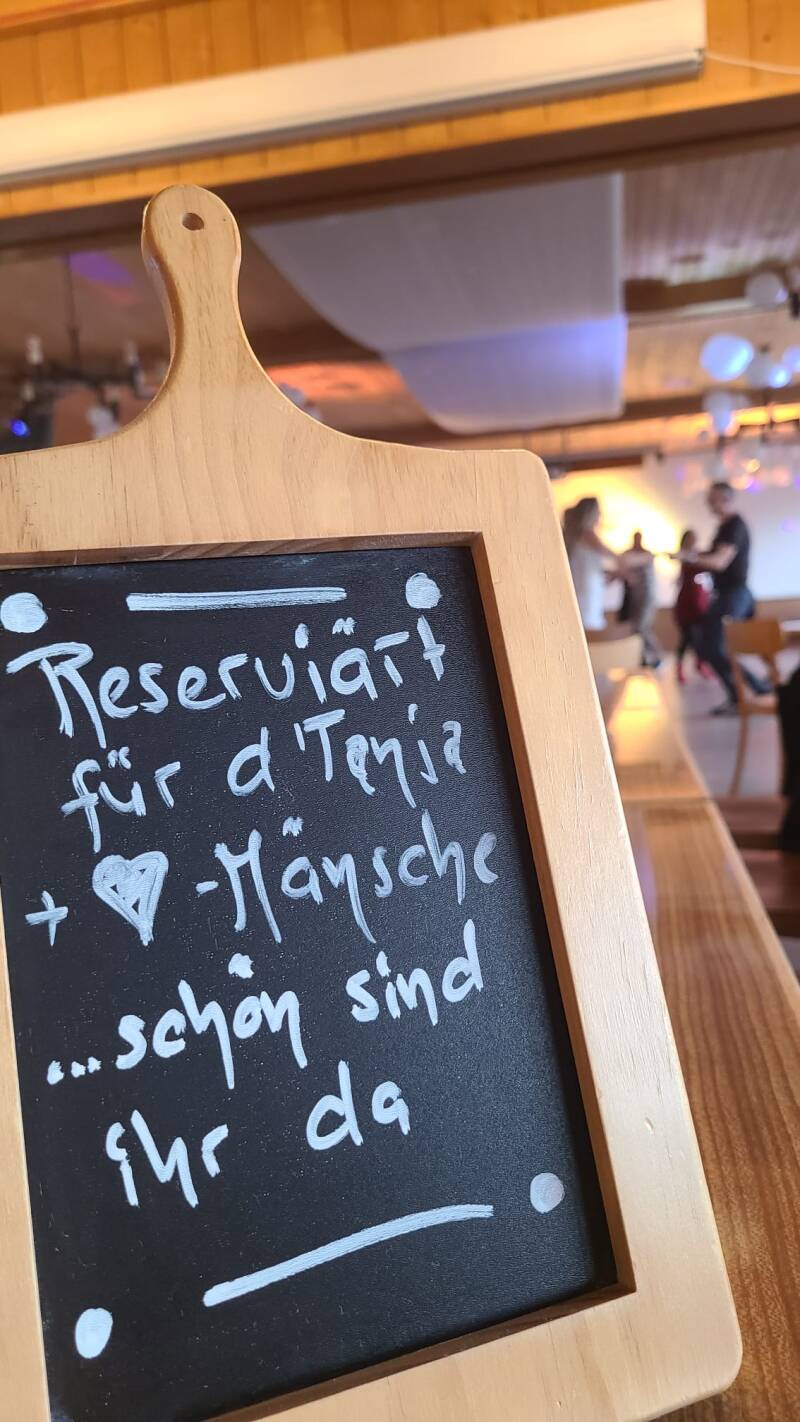 Reserviärt
für d'Tanja
+ ♥-Mänsche
...schön sind
ihr da